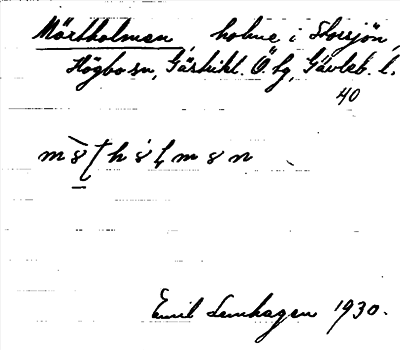 Mörtholmen, holme i Storsjön,
Högbo sn, Gästrikl. Ö. tg, Gävleb. l.
40
Emil Lenhagen 1930.